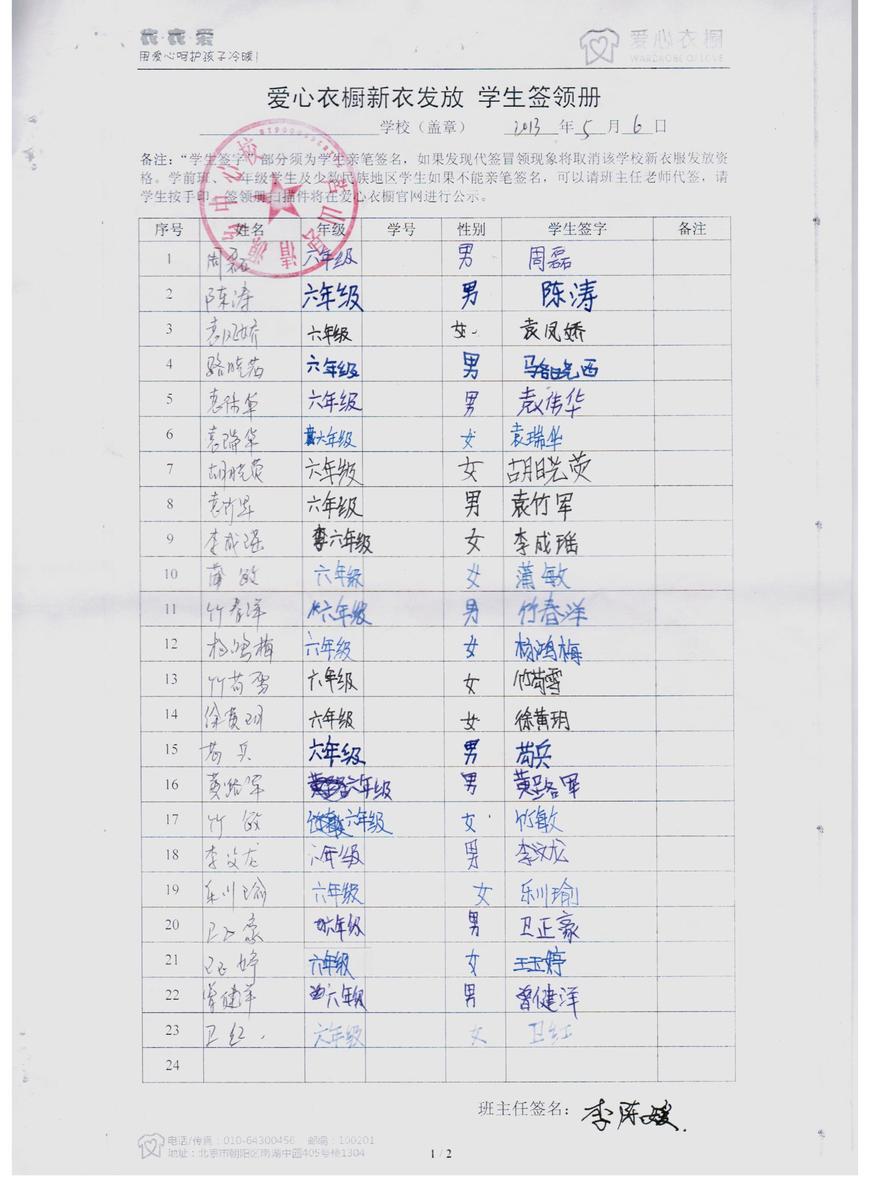 衣·衣·爱
用爱心呵护孩子冷暖!
爱心衣橱
WARDROBE OF LOVE
爱心衣橱新衣发放 学生签领册
学校(盖章) 2013 年 5 月 6 日
备注:“学生签字”部分须为学生亲笔签名,如果发现代签冒领现象将取消该学校新衣服发放资
格。学前班、一年级学生及少数民族地区学生如果不能亲笔签名,可以请班主任老师代签,请
学生按手印。签领册扫描件将在爱心衣橱官网进行公示。
序号 姓名 年级 学号 性别 学生签字 备注
1 周磊 六年级 男 周磊
2 陈涛 六年级 男 陈涛
3 袁凤娇 六年级 女 袁凤娇
4 骆晓茜 六年级 男 骆晓西
5 袁伟华 六年级 男 袁伟华
6 袁瑞华 六年级 女 袁瑞华
7 胡晓荧 六年级 女 胡晓荧
8 袁竹军 六年级 男 袁竹军
9 李成瑶 六年级 女 李成瑶
10 蕭敏 六年级 女 蕭敏
11 竹春洋 六年级 男 竹春洋
12 杨鸿梅 六年级 女 杨鸿梅
13 竹苟雪 六年级 女 竹苟雪
14 徐黄玥 六年级 女 徐黄玥
15 苟兵 六年级 男 苟兵
16 黄路军 六年级 男 黄路军
17 竹敏 六年级 女 竹敏
18 李文龙 六年级 男 李文龙
19 乐川瑜 六年级 女 乐川瑜
20 卫正豪 六年级 男 卫正豪
21 王玉婷 六年级 女 王玉婷
22 曾健洋 六年级 男 曾健洋
23 卫红 六年级 女 卫红
24
班主任签名: 李陈媛
电话/传真:010-64300456 邮编:100201
地址:北京市朝阳区南湖中园405号楼1304
1 / 2